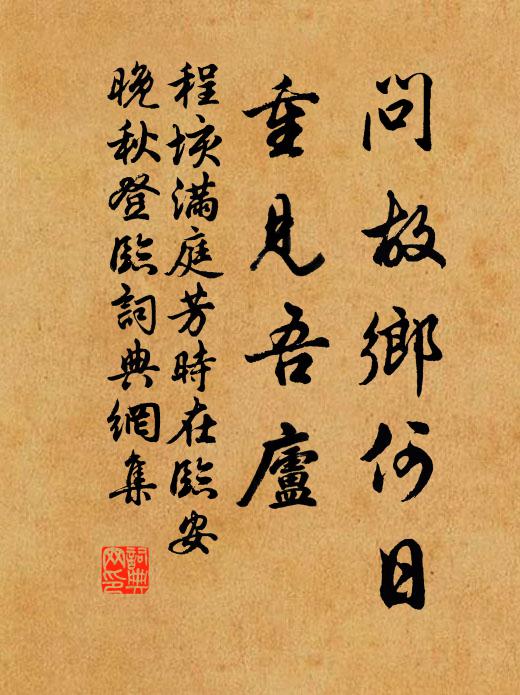 問故鄉何日
重見吾廬
程垓滿庭芳時在臨安
晚秋登臨詞典網集
詞典
网印